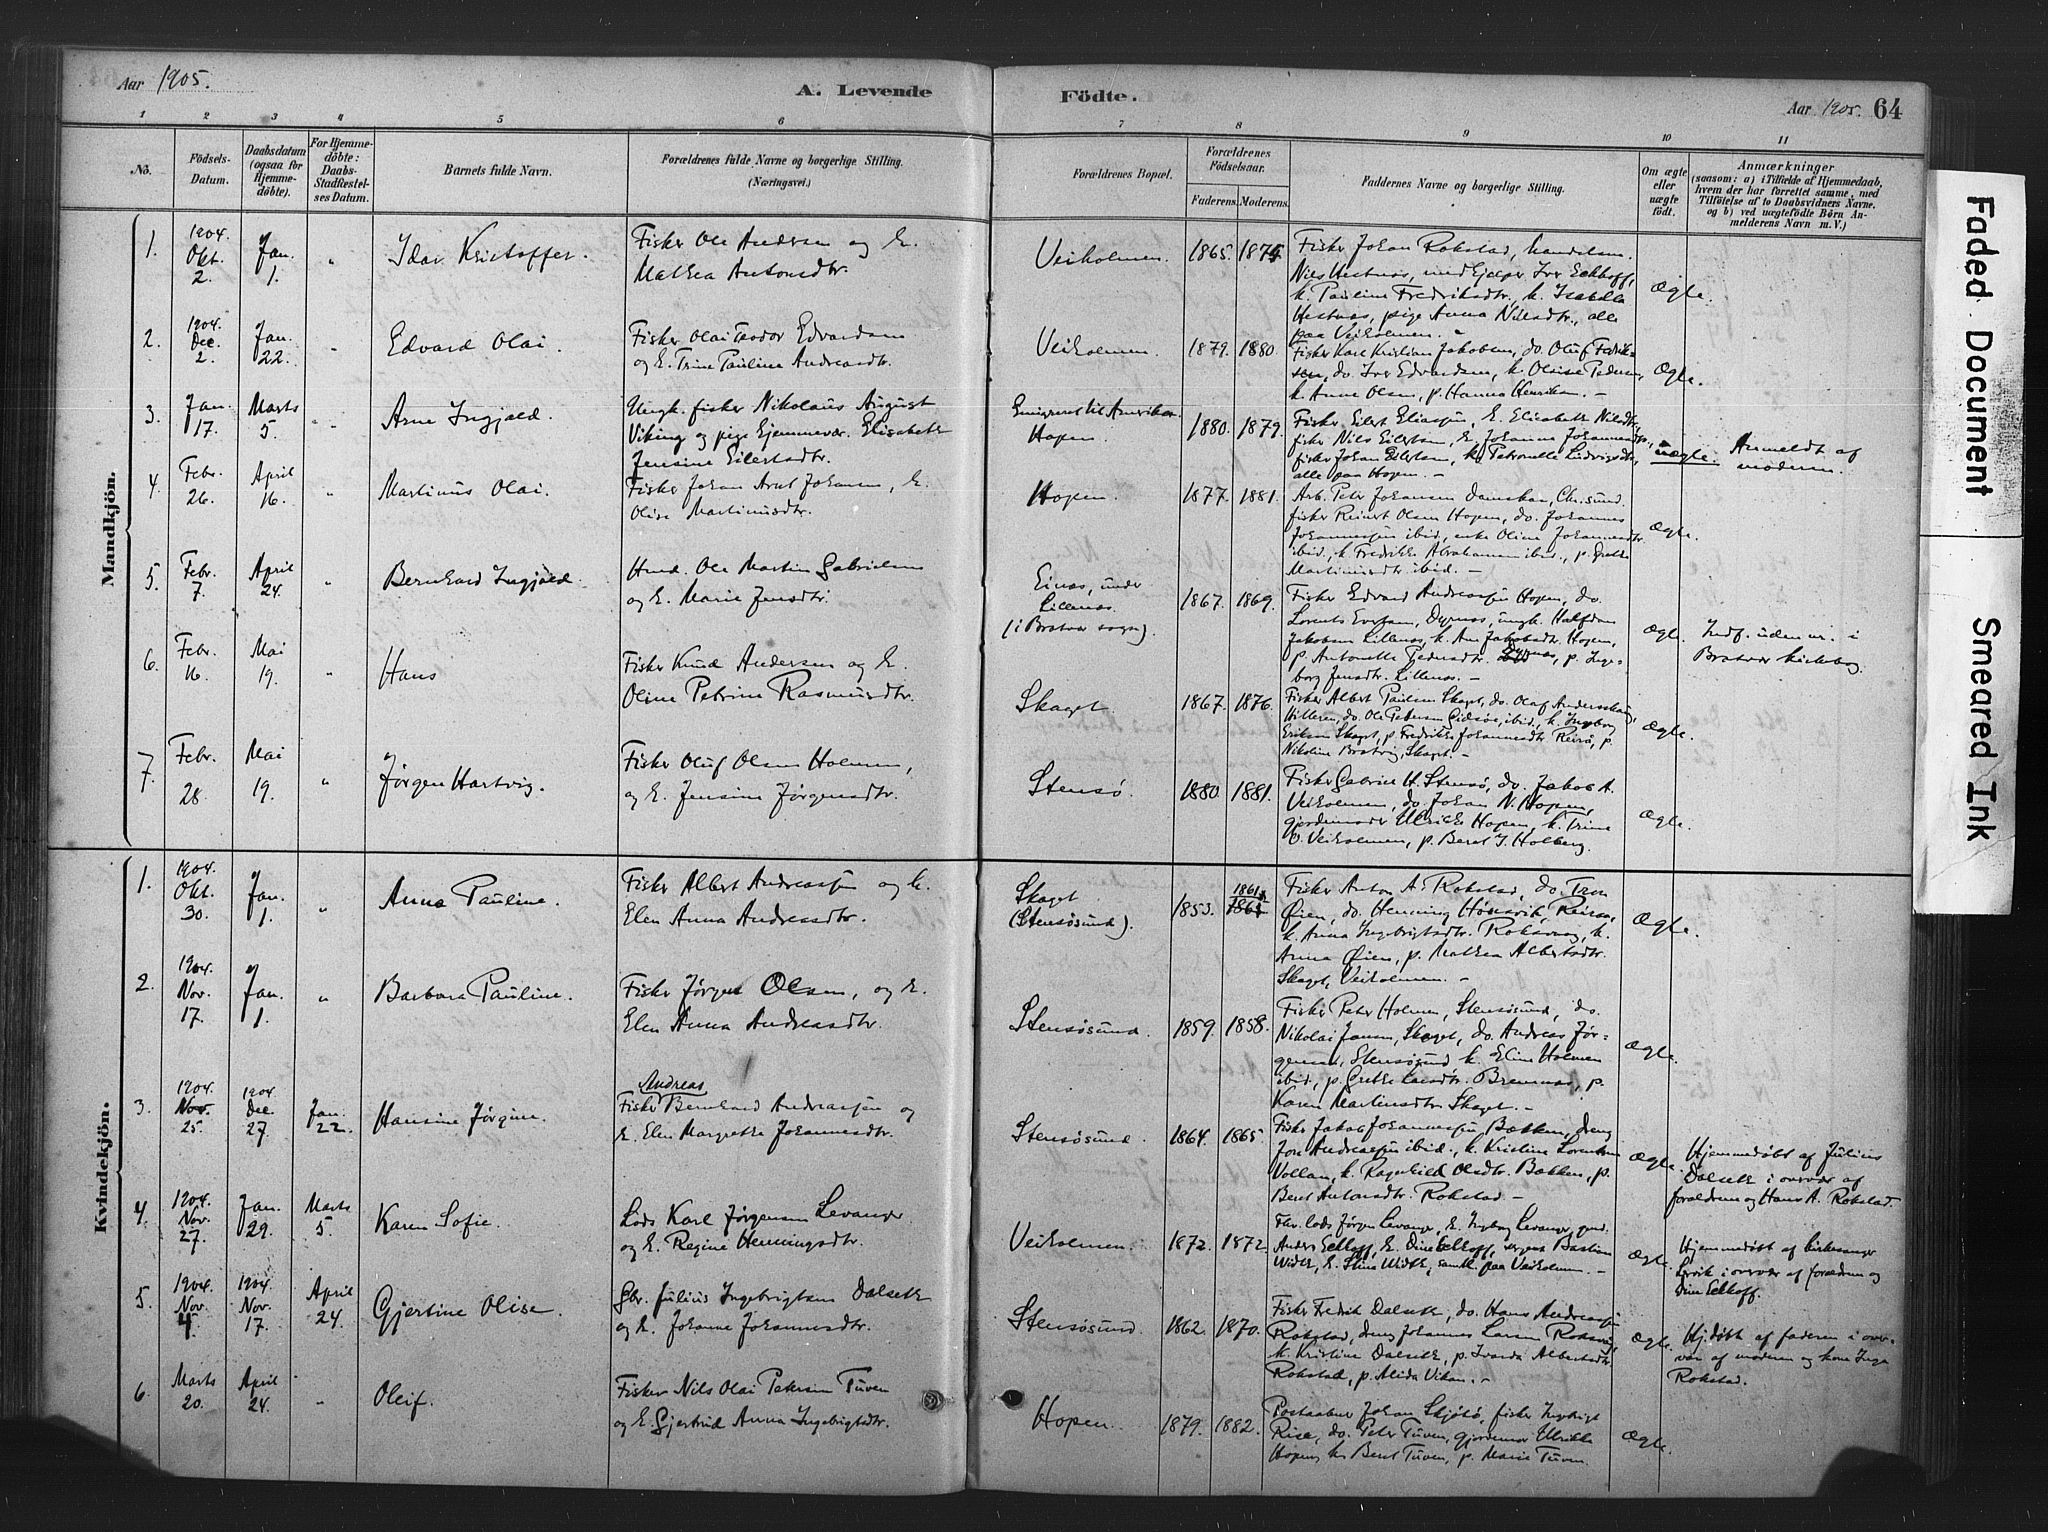 Aar 1905.
A. Levende
Födte.
Aar 1905. 64
1 2 3 4 5 6 7 8 9 10 11
No.
Födsels-
Datum.
Daabsdatum
(ogsaa for
Hjemme-
döbte).
For Hjemme-
döbte:
Daabs-
Stadfæstel-
ses Datum.
Barnets fulde Navn.
Forældrenes fulde Navne og borgerlige Stilling.
(Næringsvei.)
Forældrenes Bopæl.
Forældrenes
Födselsaar.
Faderens. Moderens.
Faddernes Navne og borgerlige Stilling.
Om ægte
eller
uægte
födt.
Anmærkninger
(saasom: a) i Tilfælde af Hjemmedaab,
hvem der har forrettet samme, med
Tilföielse af to Daabsvidners Navne.
og b) ved uægtefödte Börn An-
melderens Navn m.V.)
Mandkjön.
1.
1904.
Okt.
2.
Jan.
1.
"
Idar Kristoffer.
Fisker Ole Andersen og h.
Mathea Antonsdtr.
Veiholmen.
1865. 1874
Fisker Johan Rokstad, handelsm.
Nils Hestnæs, medhjælper Iver Eckhoff,
k. Pauline Fredriksdtr., k. Isabella
Hestnæs, pige Anna Nilsdtr., alle
paa Veiholmen.
Ægte.
2.
1904.
Dec.
2.
Jan.
22.
"
Edvard Olai.
Fisker Olai Teodor Edvardsen
og h. Trine Pauline Andreasdtr.
Veiholmen.
1879. 1880.
Fisker Karl Kristian Jakobsen, do. Oluf Fedrik-
sen, do. Iver Edvardsen, k. Olrise Pedersen,
k. Anne Olsen, p. Hanna Henriksen. -
Ægte.
3.
Jan.
17.
Marts
5.
"
Arne Ingjald.
Ungk. fisker Nikolaus August
Viking og pige hjemmevær. Elisabeth
Jensine Eilertsdtr.
Emigreret til Amerika.
Hopen.
1880. 1879.
Fisker Eilert Eliassen, h. Elisabeth Nilsdtr.,
fisker Nils Eilertsen, h. Johanna Johannesdtr.,
fisker Johan Eilertsen, k. Petronelle Ludvigsdtr.,
alle paa Hopen. -
uægte.
Anmeldt af
moderen.
4.
Febr.
26.
April
16.
"
Martinus Olai.
Fisker Johan Arnt Johansen, h.
Olise Martinusdtr.
Hopen.
1877. 1881.
Arb. Peter Johansen Damskar, Chr.sund.
fisker Reinert Olsen Hopen, do. Johannes
Johannessen ibid, enke Oline Johannesdtr.
ibid., k. Fredrikke Abrahamsen ibid., p. Grethe
Martinusdtr. ibid. -
Ægte.
5.
Febr.
7.
April
24.
"
Bernhard Ingjald.
Husmd. Ole Martin Gabrielsen
og h. Marie Jensdtr.
Einæs, under
Lillenæs.
(i Bratvær sogn).
1867. 1869.
Fisker Edvard Andreassen Hopen, do.
Lorents Evensen, Dyrnæs, ungk. Halfdan
Jakobsen Lillenæs, k. Ane Jakobsdtr. Hopen,
p. Antonette Pedersdtr. Dyrnæs, p. Inge-
borg Jensdtr. Lillenæs. -
Ægte.
Indf. uden nr. i
Bratvær kirkebog.
6.
Febr.
16.
Mai
19.
"
Hans
Fisker Knud Andersen og h.
Oline Petrine Rasmusdtr.
Skaget.
1867. 1876.
Fisker Albert Paulsen Skaget, do. Olaf Anderskaug,
Hitteren, do. Ole Petersen Gidsøe, ibid., k. Ingeborg
Eriksen Skaget, p. Fredrikke Johannesdtr. Reirsø, p.
Nikoline Bratvig, Skaget. -
Ægte.
7.
Febr.
28.
Mai
19.
"
Jørgen Hartvig.
Fisker Oluf Olsen Holmen,
og h. Jensine Jørgensdtr.
Stensø.
1880. 1881.
Fisker Gabriel H. Stensø, do. Jakob A.
Veiholmen, do. Johan N. Hopen,
gjordemoder Ulrikke Hopen, k. Trine
Veiholmen, p. Beret I. Holberg.
Ægte.
Kvindekjön.
1.
1904.
Okt.
30.
Jan.
1.
"
Anna Pauline.
Fisker Albert Andreassen og h.
Elen Anna Andreasdtr.
Skaget
(Stensøsund).
1853. 1861
Fisker Anton A. Rokstad, do. Tron
Øien, do. Henning Hønsvik, Reirsø,
k. Anna Ingebrigtsdtr. Roksvaag, k.
Anna Øien, p. Mathea Albertsdtr.
Skaget, Veiholmen. -
Ægte.
2.
1904.
Nov.
17.
Jan.
1.
"
Barbara Pauline.
Fisker Jørgen Olsen, og h.
Elen Anna Andreasdtr.
Stensøsund.
1859. 1858.
Fisker Peter Holmen, Stensøsund, do.
Nikolai Jansen, Skaget, do. Andreas Jør-
gensen, Stensøsund k. Eline Holmen
ibid, p. Grethe Larsdtr. Bremnæs, p.
Karen Martinsdtr. Skaget. -
Ægte.
3.
1904.
Nov.
25.
1904
Dec.
27.
Jan.
22.
Hansine Jørgine.
Andreas
Fisker Bernhard Andreassen og
h. Elen Margrethe Johannesdtr.
Stensøsund.
1864. 1865.
Fisker Jakob Johannessen Bækken, dreng
Jon Andreassen ibid., k. Kristine Lorentsen
Vollan, k. Ragnhild Olsdtr. Bækken, p.
Beret Antonsdtr. Rokstad -
Ægte.
Hjemmedøbt af Julius
Dalseth i overvær af
forældrene og Hans A. Rokstad.
4.
1904.
Nov.
27.
Jan.
29.
Marts
5.
Karen Sofie.
Lods Karl Jørgensen Levanger
og h. Regine Henningsdtr.
Veiholmen.
1872. 1872.
Fhv. lods Jørgen Levanger, h. Ingeborg Levanger, gmd.
Anders Eckhoff, h. Dine Eckhoff, sergeant Bastian
Width, h. Stina Width, samtl. paa Veiholmen. -
Ægte.
Hjemmedøbt af kirkesanger
Lervik i overvær af forældrene og
Dine Eckhoff.
5.
1904.
Nov.
4.
1904.
Nov.
17.
April
24.
Gjertine Olise.
Gbr. Julius Ingebrigtsen Dalseth
og h. Johanne Johannesdtr.
Stensøsund.
1862. 1870.
Fisker Fredrik Dalseth, do. Hans Andreassen
Rokstad, dreng Johannes Larsen Roksvaag,
k. Kristine Dalseth, p. Ivarda Albertsdtr.
Rokstad, p. Alida Viken. -
Ægte.
Hj.døbt af faderen i over-
vær af moderen og kone Inga
Rokstad.
6.
Marts
20.
April
24.
"
Oleif.
Fisker Nils Olai Petersen Tuven
og h. Gjertrud Anna Ingebrigtsdtr.
Hopen.
1879. 1882.
Postaabner Johan Skjølsø, fisker Ingebrigt
Risø, do. Peter Tuven, gjordemor Ulrikke
Hopen, k. Beret Tuven, p. Marie Tuven.
Ægte.
Faded Document
Smeared Ink